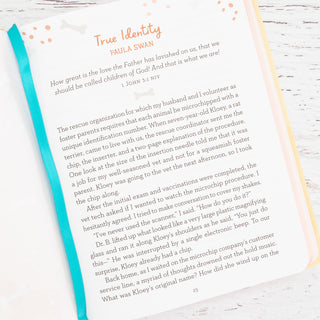 True Identity
PAULA SWAN
How great is the love the Father has lavished on us, that we
should be called children of God! And that is what we are!
I JOHN 3:1 NIV
The rescue organization for which my husband and I volunteer as
foster parents requires that each animal be microchipped with a
unique identification number. When seven-year-old Kloey, a rat
terrier, came to live with us, the rescue coordinator sent me the
chip, the inserter, and a two-page explanation of the procedure.
One look at the size of the insertion needle told me that it was
a job for my well-seasoned vet and not for a squeamish foster
parent. Kloey was going to the vet the next afternoon, so I took
the chip along.
After the initial exam and vaccinations were completed, the
vet tech asked if I wanted to watch the microchip procedure. I
hesitantly agreed. I tried to make conversation to cover my shakes.
"I've never used the scanner," I said. "How do you do it?"
Dr. B. lifted up what looked like a very large plastic magnifying
glass and ran it along Kloey's shoulders as he said, "You just do
this—" He was interrupted by a single electronic beep. To our
surprise, Kloey already had a chip.
Back home, as I waited on the microchip company's customer
service line, a myriad of thoughts drowned out the hold music.
What was Kloey's original name? How did she wind up on the